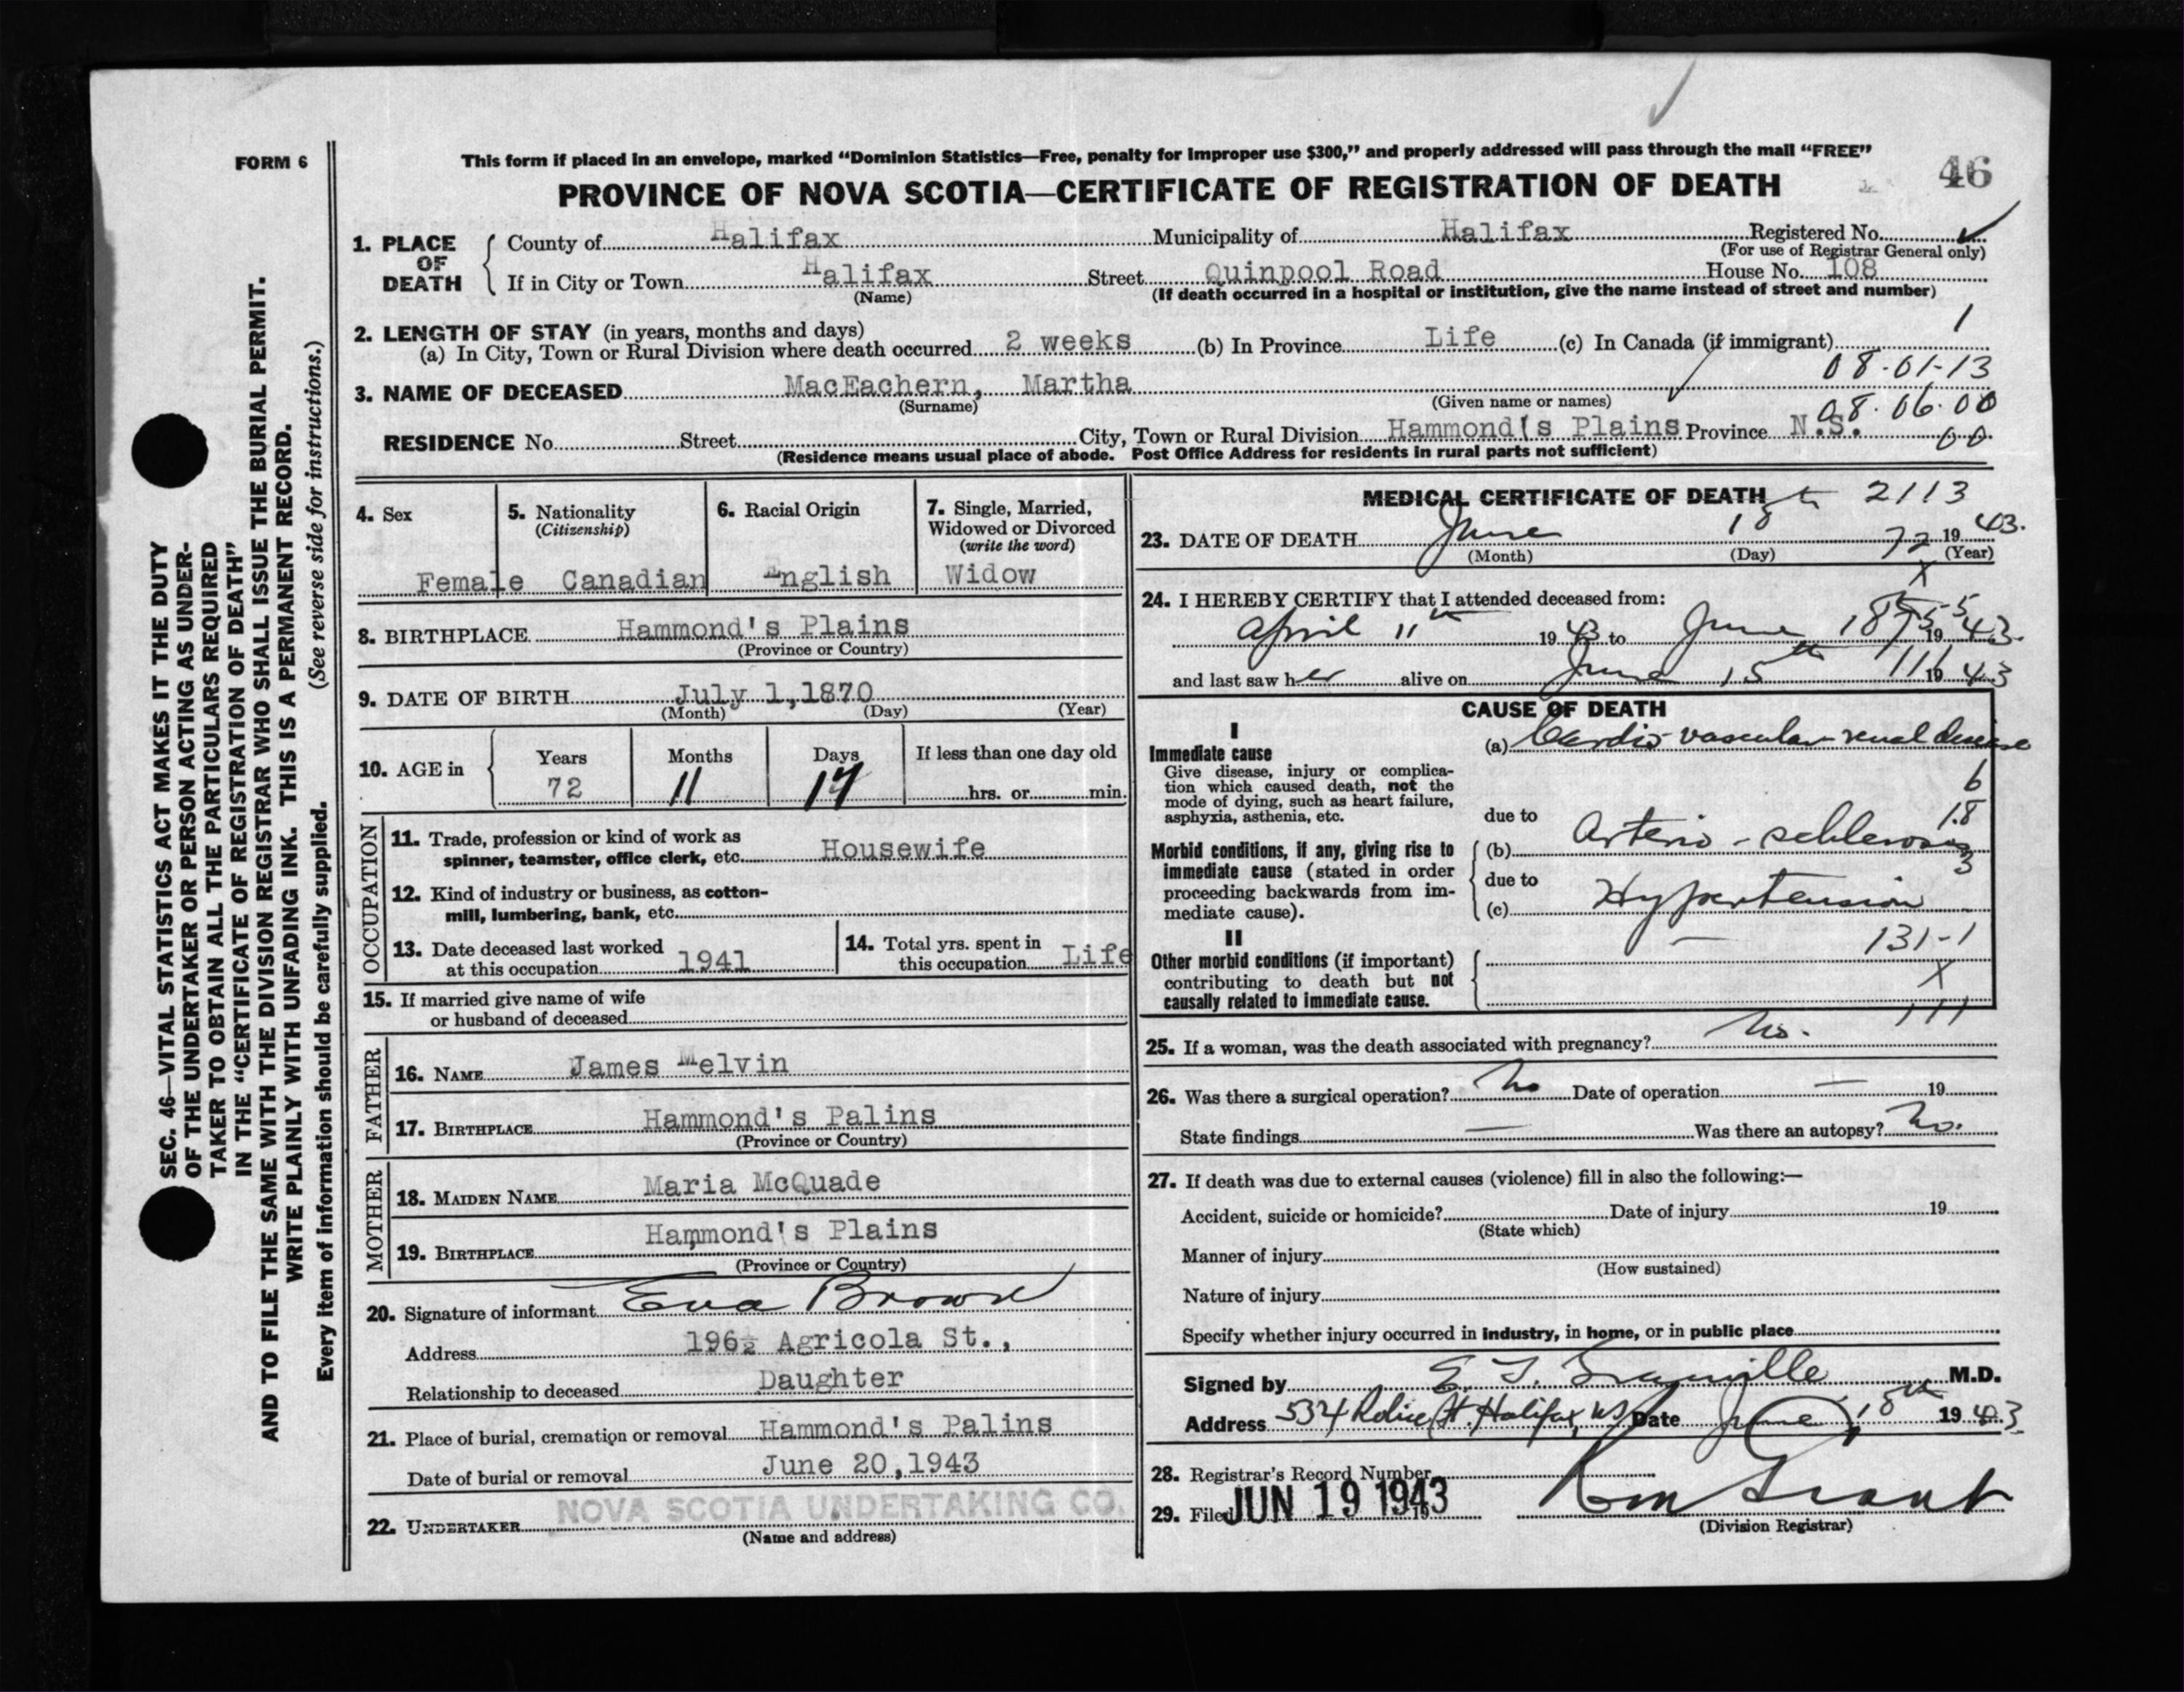 FORM 6
This form if placed in an envelope, marked “Dominion Statistics—Free, penalty for improper use $300,” and properly addressed will pass through the mail “FREE”
PROVINCE OF NOVA SCOTIA—CERTIFICATE OF REGISTRATION OF DEATH 46
1. PLACE OF DEATH
County of Halifax Municipality of Halifax Registered No.
(For use of Registrar General only)
If in City or Town Halifax Street Quinpool Road House No. 108
(Name) (If death occurred in a hospital or institution, give the name instead of street and number)
2. LENGTH OF STAY (in years, months and days) 1
(a) In City, Town or Rural Division where death occurred 2 weeks (b) In Province Life (c) In Canada (if immigrant)
08-01-13
3. NAME OF DECEASED MacEachern, Martha
(Surname) (Given name or names) 08.06.00
RESIDENCE No. Street City, Town or Rural Division Hammond's Plains Province N.S. 00
(Residence means usual place of abode. Post Office Address for residents in rural parts not sufficient)
4. Sex Female
5. Nationality (Citizenship) Canadian
6. Racial Origin English
7. Single, Married, Widowed or Divorced (write the word) Widow
8. BIRTHPLACE Hammond's Plains
(Province or Country)
9. DATE OF BIRTH July 1, 1870
(Month) (Day) (Year)
10. AGE in Years Months Days If less than one day old
72 11 17 hrs. or min.
OCCUPATION
11. Trade, profession or kind of work as
spinner, teamster, office clerk, etc. Housewife
12. Kind of industry or business, as cotton-
mill, lumbering, bank, etc.
13. Date deceased last worked
at this occupation 1941
14. Total yrs. spent in
this occupation Life
15. If married give name of wife
or husband of deceased
FATHER
16. NAME James Melvin
17. BIRTHPLACE Hammond's Palins
(Province or Country)
MOTHER
18. MAIDEN NAME Maria McQuade
19. BIRTHPLACE Hammond's Plains
(Province or Country)
20. Signature of informant Eva Brown
Address 196½ Agricola St.,
Relationship to deceased Daughter
21. Place of burial, cremation or removal Hammond's Palins
Date of burial or removal June 20, 1943
NOVA SCOTIA UNDERTAKING CO.
22. UNDERTAKER
(Name and address)
MEDICAL CERTIFICATE OF DEATH 2113
23. DATE OF DEATH June 18th 1943.
(Month) (Day) (Year)
72
X
24. I HEREBY CERTIFY that I attended deceased from:
April 11th 1943 to June 18 1943.
and last saw her alive on June 15th 1943
111
CAUSE OF DEATH
I
Immediate cause
Give disease, injury or complica-
tion which caused death, not the
mode of dying, such as heart failure,
asphyxia, asthenia, etc.
(a) Cardio-vascular-renal disease
6
18
due to
Morbid conditions, if any, giving rise to
immediate cause (stated in order
proceeding backwards from im-
mediate cause).
(b) Arterio-schlerosis
3
due to
(c) Hypertension
II
131-1
Other morbid conditions (if important)
contributing to death but not
causally related to immediate cause.
X
111
25. If a woman, was the death associated with pregnancy? No.
26. Was there a surgical operation? No Date of operation — 19
State findings — Was there an autopsy? No.
27. If death was due to external causes (violence) fill in also the following:—
Accident, suicide or homicide? Date of injury 19
(State which)
Manner of injury
(How sustained)
Nature of injury
Specify whether injury occurred in industry, in home, or in public place
Signed by E. T. Granville M.D.
Address 534 Robie St. Halifax, NS Date June 18th 1943
28. Registrar's Record Number
29. Filed JUN 19 1943 19
(Division Registrar)
SEC. 46—VITAL STATISTICS ACT MAKES IT THE DUTY
OF THE UNDERTAKER OR PERSON ACTING AS UNDER-
TAKER TO OBTAIN ALL THE PARTICULARS REQUIRED
IN THE “CERTIFICATE OF REGISTRATION OF DEATH”
AND TO FILE THE SAME WITH THE DIVISION REGISTRAR WHO SHALL ISSUE THE BURIAL PERMIT.
WRITE PLAINLY WITH UNFADING INK. THIS IS A PERMANENT RECORD.
Every item of information should be carefully supplied. (See reverse side for instructions.)